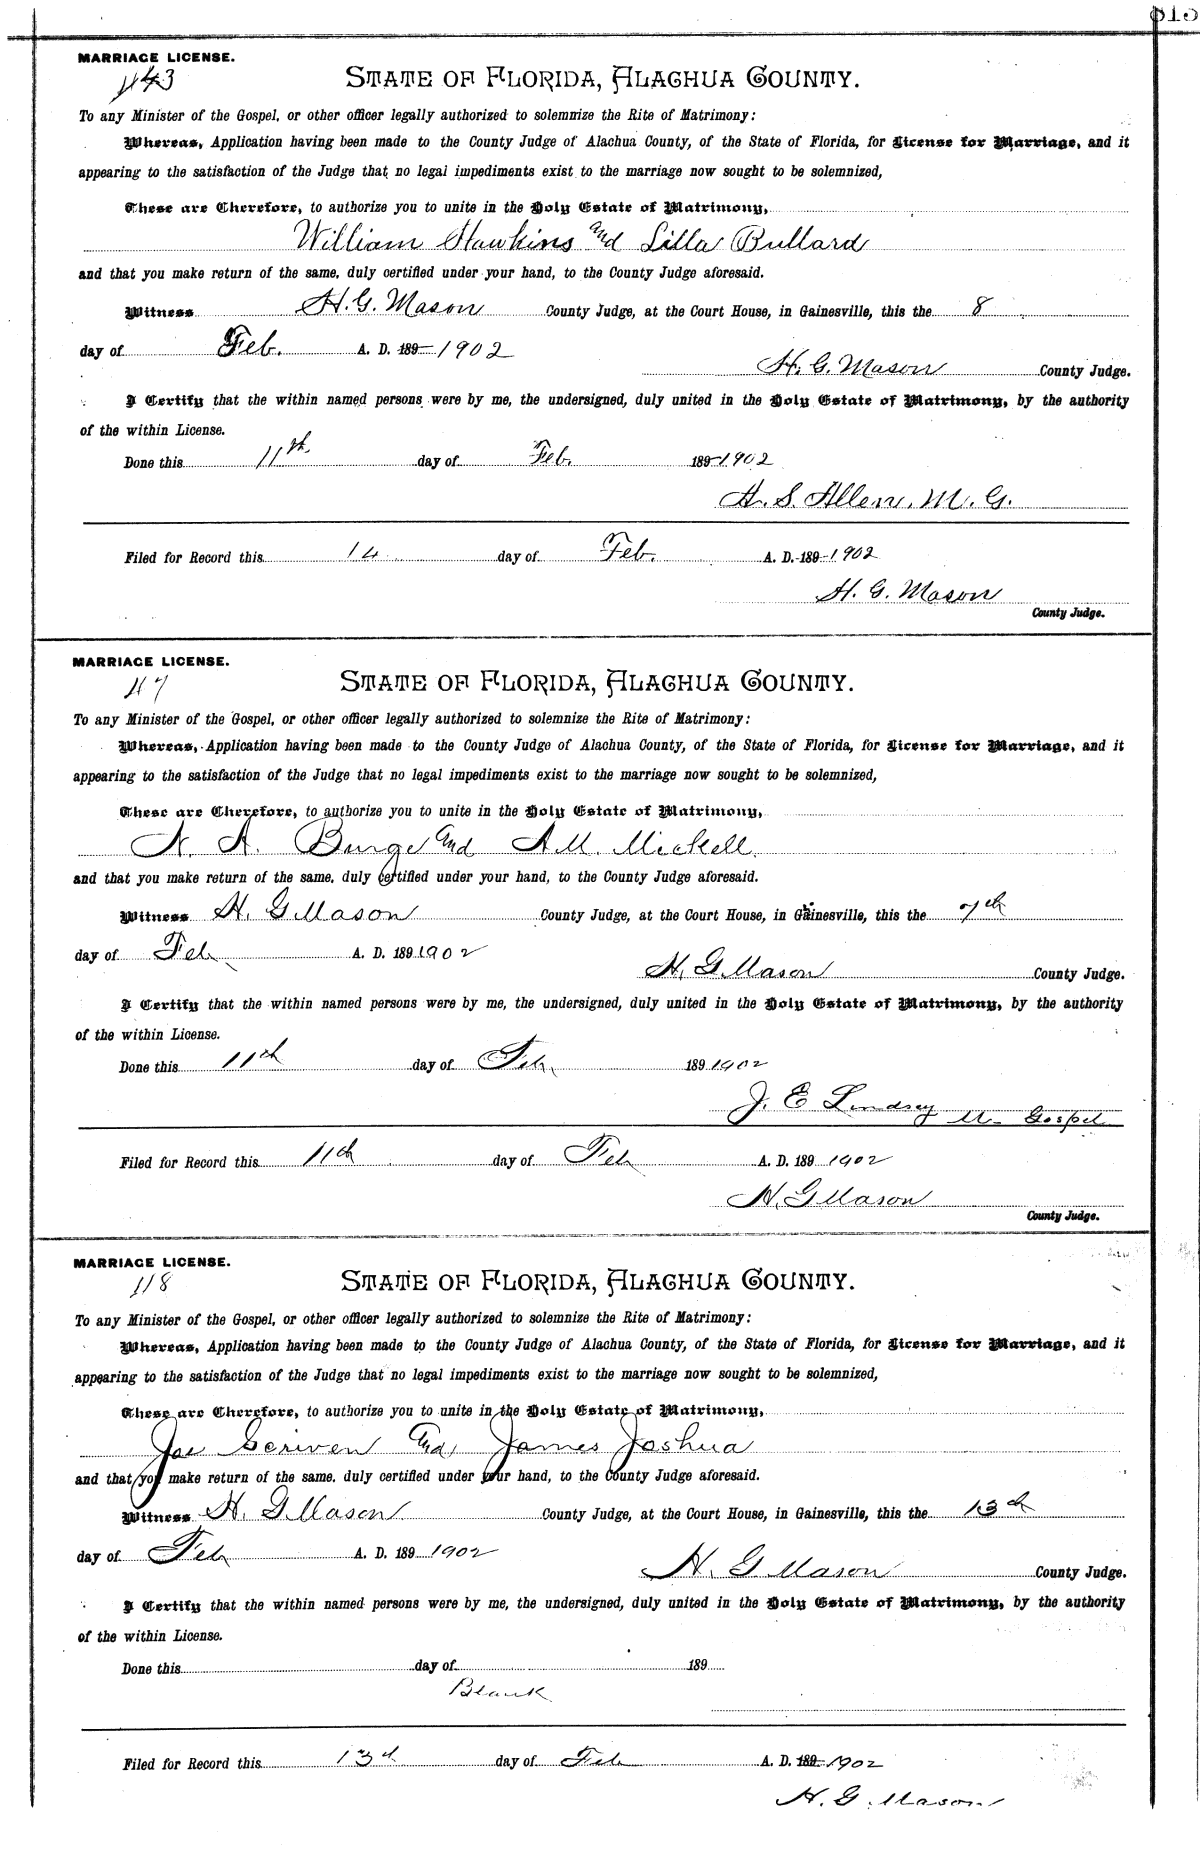 MARRIAGE LICENSE.
143
STATE OF FLORIDA, ALACHUA COUNTY.
To any Minister of the Gospel, or other officer legally authorized to solemnize the Rite of Matrimony:
Whereas, Application having been made to the County Judge of Alachua County, of the State of Florida, for License for Marriage, and it
appearing to the satisfaction of the Judge that no legal impediments exist to the marriage now sought to be solemnized,
These are Therefore, to authorize you to unite in the Holy Estate of Matrimony,
William Hawkins and Lilla Bullard
and that you make return of the same, duly certified under your hand, to the County Judge aforesaid.
Witness H. G. Mason County Judge, at the Court House, in Gainesville, this the 8
day of Feb. A. D. 189 1902
H. G. Mason County Judge.
I Certify that the within named persons were by me, the undersigned, duly united in the Holy Estate of Matrimony, by the authority
of the within License.
Done this 11th day of Feb. 189 1902
H. S. Allen, M. G.
Filed for Record this 14 day of Feb. A. D. 189 1902
H. G. Mason
County Judge.
MARRIAGE LICENSE.
STATE OF FLORIDA, ALACHUA COUNTY.
To any Minister of the Gospel, or other officer legally authorized to solemnize the Rite of Matrimony:
Whereas, Application having been made to the County Judge of Alachua County, of the State of Florida, for License for Marriage, and it
appearing to the satisfaction of the Judge that no legal impediments exist to the marriage now sought to be solemnized,
These are Therefore, to authorize you to unite in the Holy Estate of Matrimony,
N. A. Burge and A.M. Mickell.
and that you make return of the same, duly certified under your hand, to the County Judge aforesaid.
Witness H. G Mason County Judge, at the Court House, in Gainesville, this the 7th
day of Feb A. D. 189 1902
H. G Mason County Judge.
I Certify that the within named persons were by me, the undersigned, duly united in the Holy Estate of Matrimony, by the authority
of the within License.
Done this 11th day of Feb. 189 1902
J. E Lindsey M. Gospel
Filed for Record this 11th day of Feb A. D. 189 1902
H. G Mason
County Judge.
MARRIAGE LICENSE.
118
STATE OF FLORIDA, ALACHUA COUNTY.
To any Minister of the Gospel, or other officer legally authorized to solemnize the Rite of Matrimony:
Whereas, Application having been made to the County Judge of Alachua County, of the State of Florida, for License for Marriage, and it
appearing to the satisfaction of the Judge that no legal impediments exist to the marriage now sought to be solemnized,
These are Therefore, to authorize you to unite in the Holy Estate of Matrimony,
Joe Scriven and James Joshua
and that you make return of the same, duly certified under your hand, to the County Judge aforesaid.
Witness H. G Mason County Judge, at the Court House, in Gainesville, this the 13th
day of Feb A. D. 189 1902
H. G Mason County Judge.
I Certify that the within named persons were by me, the undersigned, duly united in the Holy Estate of Matrimony, by the authority
of the within License.
Done this day of 189
Blank
Filed for Record this 13th day of Feb A. D. 189 1902
H. G. Mason